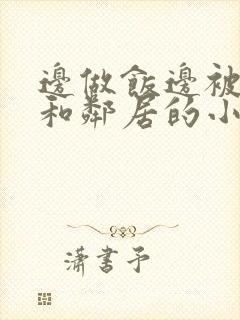 邊做飯邊被
和鄰居的小
瀟書予